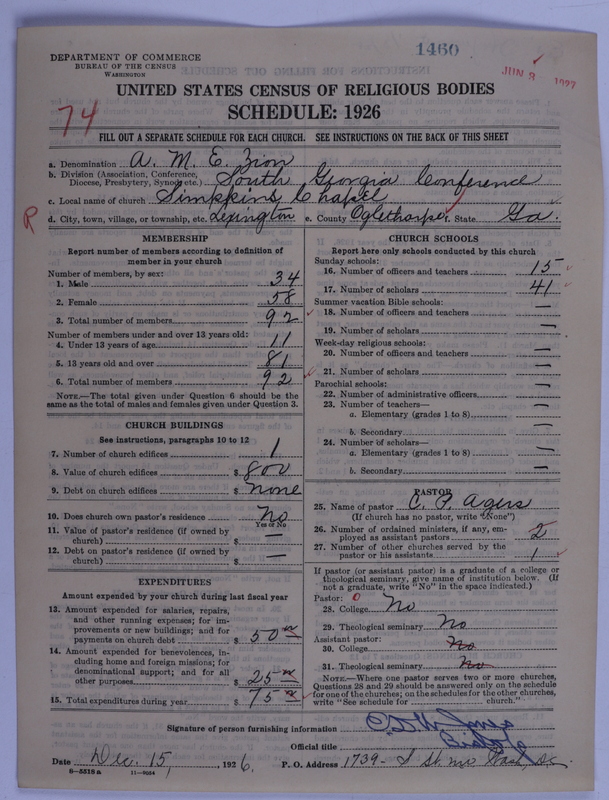 1460
DEPARTMENT OF COMMERCE
BUREAU OF THE CENSUS
WASHINGTON
JUN 8 1927
UNITED STATES CENSUS OF RELIGIOUS BODIES
SCHEDULE: 1926
74
FILL OUT A SEPARATE SCHEDULE FOR EACH CHURCH. SEE INSTRUCTIONS ON THE BACK OF THIS SHEET
a. Denomination A. M. E. Zion
b. Division (Association, Conference, Diocese, Presbytery, Synod, etc.) South Georgia Conference
c. Local name of church Simpkins Chapel
R
d. City, town, village, or township, etc. Lexington e. County Oglethorpe f. State Ga.
MEMBERSHIP
Report number of members according to definition of
member in your church
Number of members, by sex:
1. Male 34
2. Female 58
3. Total number of members 92
Number of members under and over 13 years old:
4. Under 13 years of age 11
5. 13 years old and over 81
6. Total number of members 92
NOTE.—The total given under Question 6 should be the
same as the total of males and females given under Question 3.
CHURCH BUILDINGS
See instructions, paragraphs 10 to 12
7. Number of church edifices 1
8. Value of church edifices $ 800
9. Debt on church edifices $ none
10. Does church own pastor's residence No
Yes or No
11. Value of pastor's residence (if owned by
church) $ —
12. Debt on pastor's residence (if owned by
church) $ —
EXPENDITURES
Amount expended by your church during last fiscal year
13. Amount expended for salaries, repairs,
and other running expenses; for im-
provements or new buildings; and for
payments on church debt $ 50
14. Amount expended for benevolences, in-
cluding home and foreign missions; for
denominational support; and for all
other purposes $ 25
15. Total expenditures during year $ 75
CHURCH SCHOOLS
Report here only schools conducted by this church
Sunday schools:
16. Number of officers and teachers 15
17. Number of scholars 41
Summer vacation Bible schools:
18. Number of officers and teachers —
19. Number of scholars —
Week-day religious schools:
20. Number of officers and teachers —
21. Number of scholars —
Parochial schools:
22. Number of administrative officers —
23. Number of teachers—
a. Elementary (grades 1 to 8) —
b. Secondary —
24. Number of scholars—
a. Elementary (grades 1 to 8) —
b. Secondary —
PASTOR
25. Name of pastor C. P.
(If church has no pastor, write "None")
26. Number of ordained ministers, if any, em-
ployed as assistant pastors 2
27. Number of other churches served by the
pastor or his assistants 1
If pastor (or assistant pastor) is a graduate of a college or
theological seminary, give name of institution below. (If
not a graduate, write "No" in the space indicated.)
Pastor: 0
28. College No
29. Theological seminary No
Assistant pastor:
30. College No
31. Theological seminary No
NOTE.—Where one pastor serves two or more churches,
Questions 28 and 29 should be answered only on the schedule
for one of the churches; on the schedules for the other churches,
write "See schedule for church."
Signature of person furnishing information
Official title Bishop
Date Dec. 15, 1926. P. O. Address 1739- S St. NW Wash, D.C.
6-5518a 11-9054